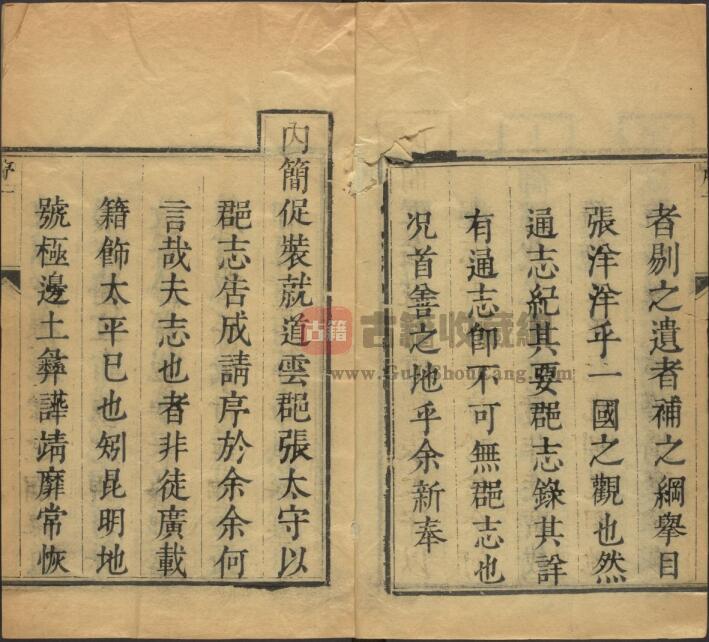 者剔之遺者補之綱舉目
張洋洋乎一國之觀也然
通志紀其要郡志錄其詳
有通志卽不可無郡志也
况首善之地乎余新奉
內簡促裝就道雲郡張太守以
郡志告成請序於余余何
言哉夫志也者非徒廣載
籍飾太平已也矧昆明地
號極邊土彝譁靖靡常恢
序
古籍
古籍收藏網